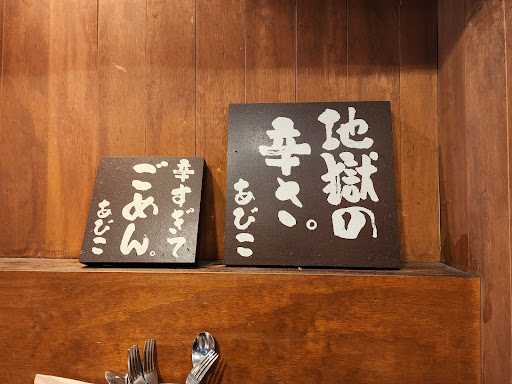 辛すぎて
ごめん。
あびこ
地獄の
辛さ。
あびこ